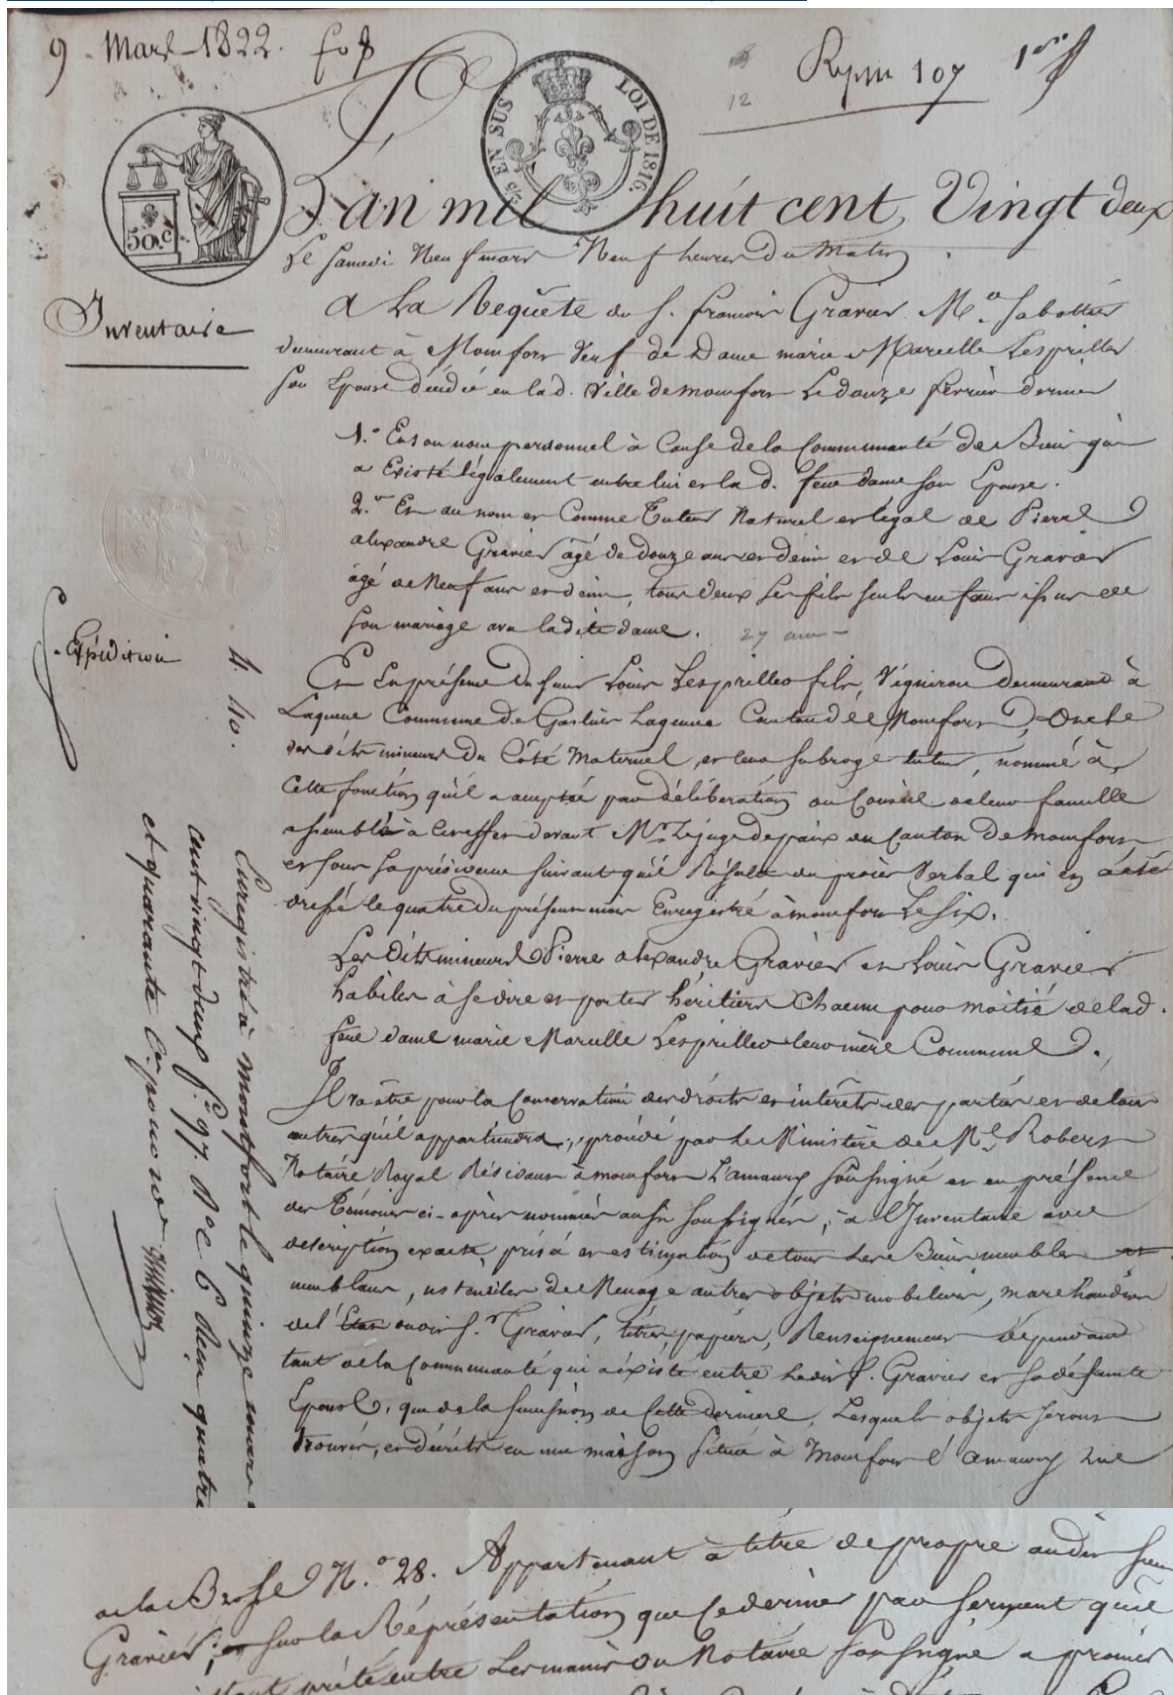 9 Mars 1822. fo 8
12
Repre 107
5/5 EN SUS LOI DE 1816.
50.c
L'an mil huit cent Vingt deux
Le Samedi Neuf mars Neuf heures du Matin
Inventaire
A La Requête du S. francois Gravier M.d Sabottier
demeurant à Monfort Veuf de Dame marie Marcelle Lesprillier
son Epouse décédée en lad. Ville de monfort Le douze fevrier dernier
1.o En son nom personnel à Cause de la Communauté de Biens qui
a Existé légalement entre lui et lad. feue dame son Epouse.
2.o Et au nom et Comme Tuteur Naturel et légal de Pierre
alexandre Gravier âgé de douze ans et demi et de Louis Gravier
âgé de Neuf ans et demi, tous deux ses fils seuls enfans issus de
son mariage avec ladite dame. 27 ans
Expédition
Et En présence du sieur Louis Lesprillier fils, Vigneron demeurant à
Laqueue Commune de Galluis Laqueue Canton de Monfort, Oncle
desdits mineurs du Côté Maternel, et leur subrogé tuteur, nommé à
Cette fonction qu'il a acceptée par délibération du Conseil de leur famille
assemblé à Cet effet devant Mr. Le juge de paix du Canton De monfort
et sous sa présidence suivant qu'il Résulte du procès Verbal qui en a été
dressé le quatre du présent mois Enregistré à monfort Le Six.
Les dits mineurs Pierre alexandre Gravier et Louis Gravier
habiles à se dire et porter héritiers Chacun pour moitié de lad.
feue dame marie Marcelle Lesprillier leur mère Commune.
Il va être pour la Conservation des droits et intérêts des parties et de tous
autres qu'il appartiendra, procédé par Le Ministère de Me. Robert
Notaire Royal Résidant à monfort L'amaury soussigné et en présence
des Témoins ci-après nommés aussi soussignés, à l'Inventaire avec
description exacte, prisée et estimation de tous les Biens meubles et
meublans, ustensiles de Menage autres objets mobiliers, marchandises
de l'Etat dudit S.r Gravier, titres, papiers, Renseignemens dépendant
tant de la Communauté qui a éxisté entre ledit S. Gravier et sa défunte
Epouse, que de la succession de Cette dernière, Lesquels objets seront
trouvés, et décrits en une maison située à Monfort l'amaury rue
4. 40.
Enregistré à Montfort le quinze mars
cent vingt deux f.o 97. R.o C. 6 Reçu quatre
et quarante C.es pour
de la Brosse N.o 28. Appartenant à titre de propre audit sieur
Gravier, et sur la Représentation que Ce dernier par serment qu'il
prêté entre Les mains du Notaire soussigné a promis